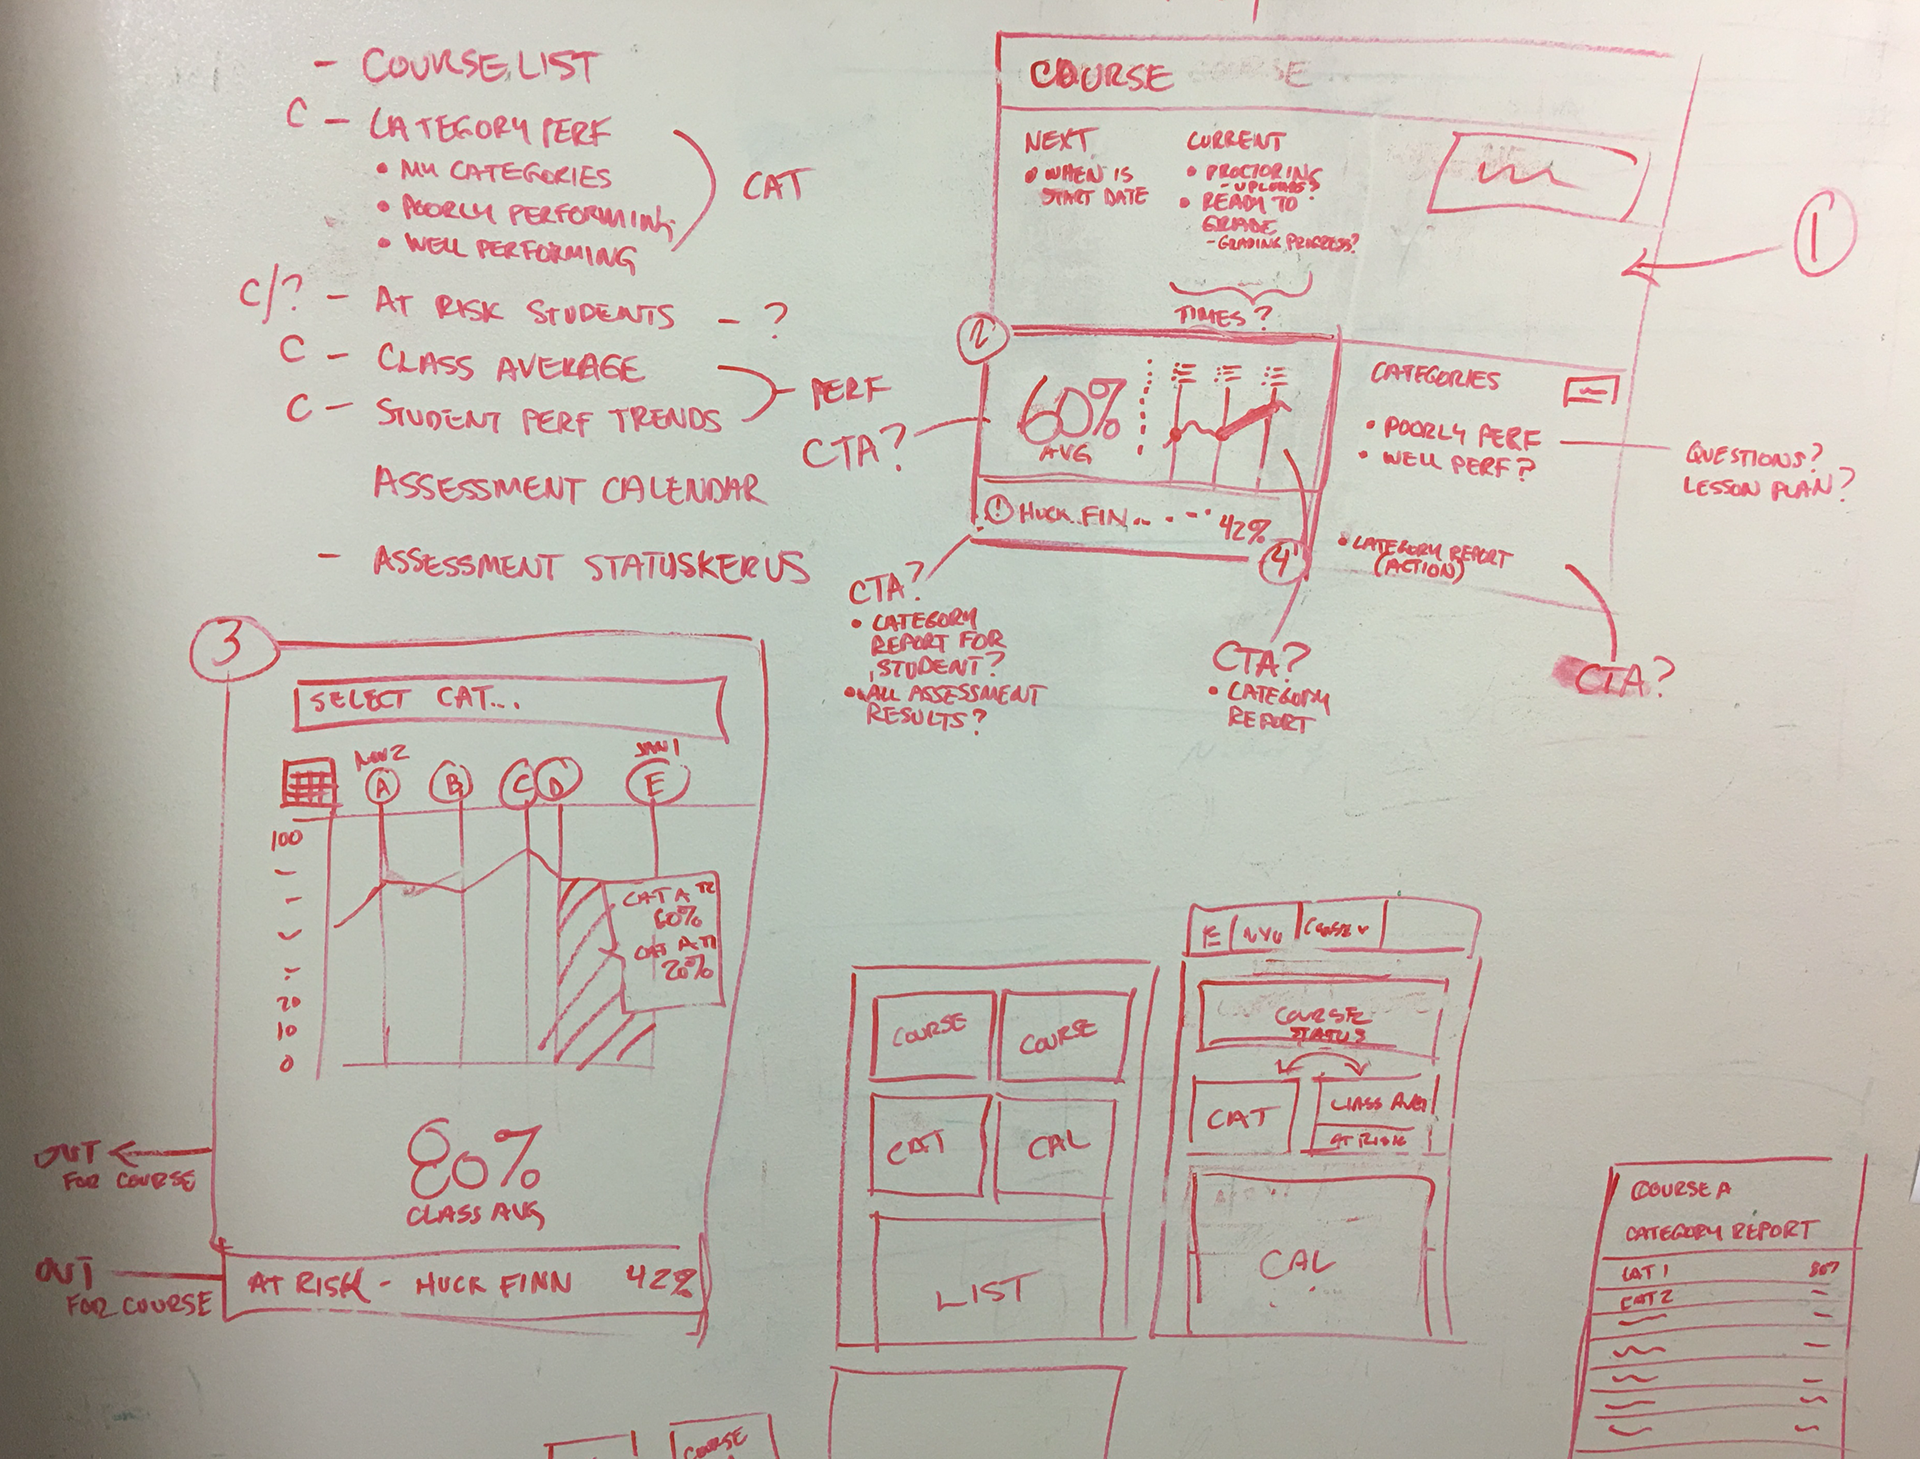 - COURSE LIST
C - CATEGORY PERF
• MY CATEGORIES
• POORLY PERFORMING
• WELL PERFORMING
CAT
C/? - AT RISK STUDENTS - ?
C - CLASS AVERAGE
C - STUDENT PERF TRENDS
PERF
ASSESSMENT CALENDAR
- ASSESSMENT STATUSKERUS
COURSE
NEXT
• WHEN IS
START DATE
CURRENT
• PROCTORING
- UPLOADS?
• READY TO
GRADE
- GRADING PROGRESS?
TIMES?
1
2
60%
AVG
CTA?
! HUCK FIN... 42%
4
CATEGORIES
• POORLY PERF
• WELL PERF?
• CATEGORY REPORT
(ACTION)
QUESTIONS?
LESSON PLAN?
CTA?
CTA?
• CATEGORY
REPORT FOR
STUDENT?
• ALL ASSESSMENT
RESULTS?
CTA?
• CATEGORY
REPORT
3
SELECT CAT...
NOV 2
JAN 1
A B C D E
100
20
10
0
CAT A T2
60%
CAT A T1
20%
80%
CLASS AVG
OUT
FOR COURSE
OUT
FOR COURSE
AT RISK - HUCK FINN 42%
COURSE
COURSE
CAT
CAL
LIST
NYU
COURSE
STATUS
CAT
CLASS AVG
AT RISK
CAL
COURSE A
CATEGORY REPORT
CAT 1
CAT 2
COURSE